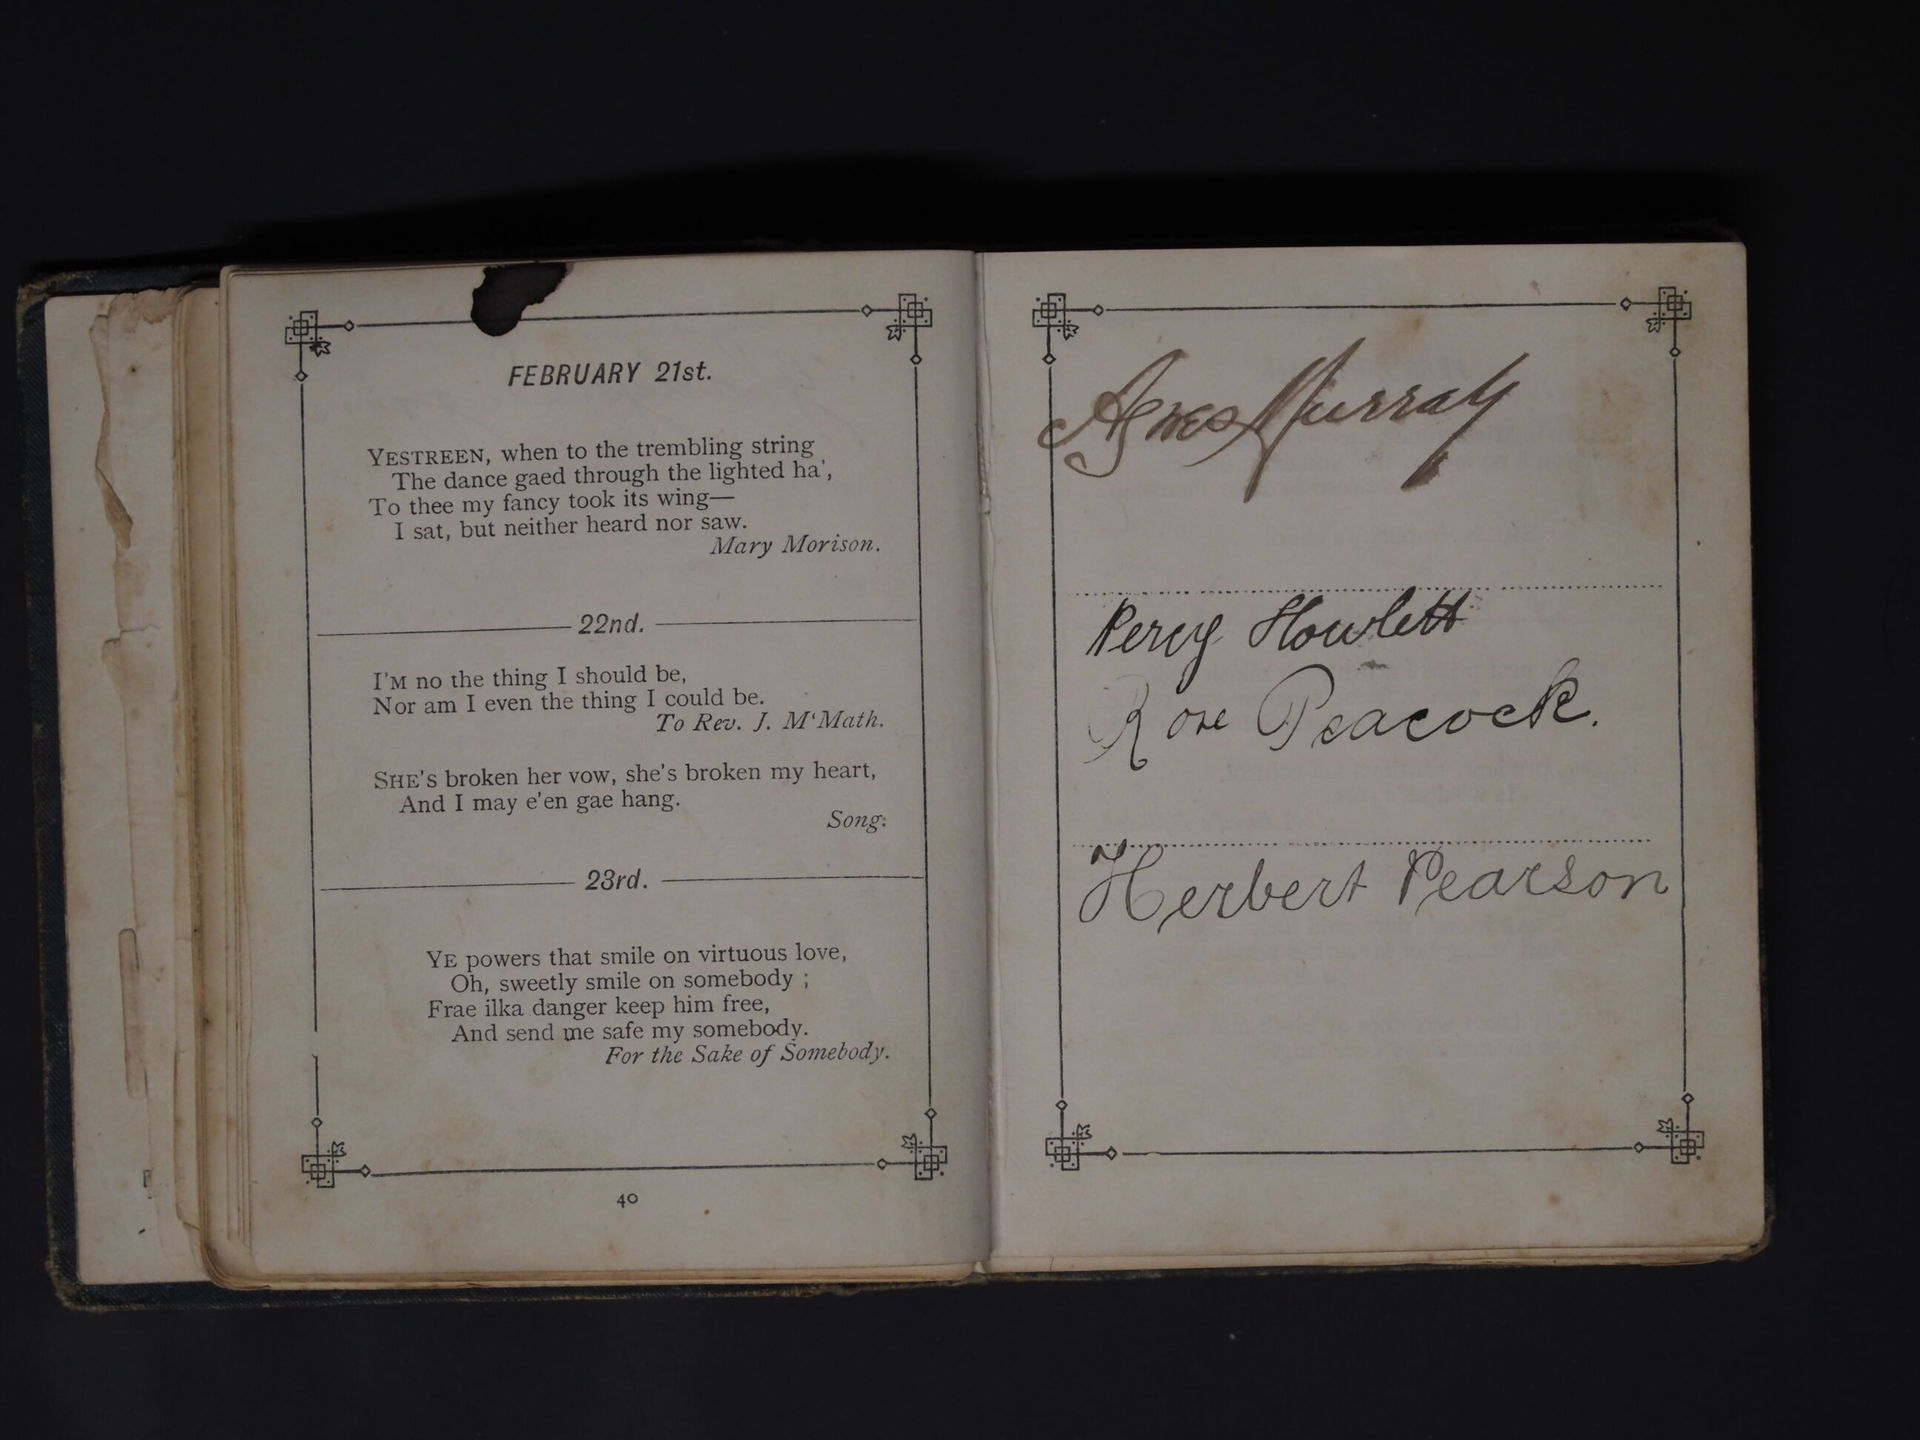 FEBRUARY 21st.
YESTREEN, when to the trembling string
The dance gaed through the lighted ha',
To thee my fancy took its wing—
I sat, but neither heard nor saw.
Mary Morison.
22nd.
I'M no the thing I should be,
Nor am I even the thing I could be.
To Rev. J. M'Math.
SHE'S broken her vow, she's broken my heart,
And I may e'en gae hang.
Song.
23rd.
YE powers that smile on virtuous love,
Oh, sweetly smile on somebody ;
Frae ilka danger keep him free,
And send me safe my somebody.
For the Sake of Somebody.
40
Agnes Murray
Percy Howlett
Rose Peacock.
Herbert Pearson